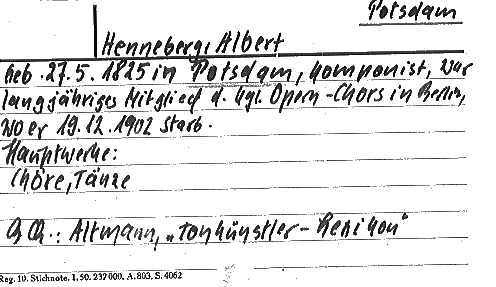 Potsdam
Henneberg, Albert
Geb. 27.5. 1825 in Potsdam, Komponist, war
langjähriges Mitglied d. kgl. Opern-Chors in Berlin,
wo er 19.12.1902 starb.
Hauptwerke:
Chöre, Tänze
Altmann, „Tonkünstler-Lexikon"
Reg. 10. Stichnote. 1.50. 237000. A.803. S. 4062